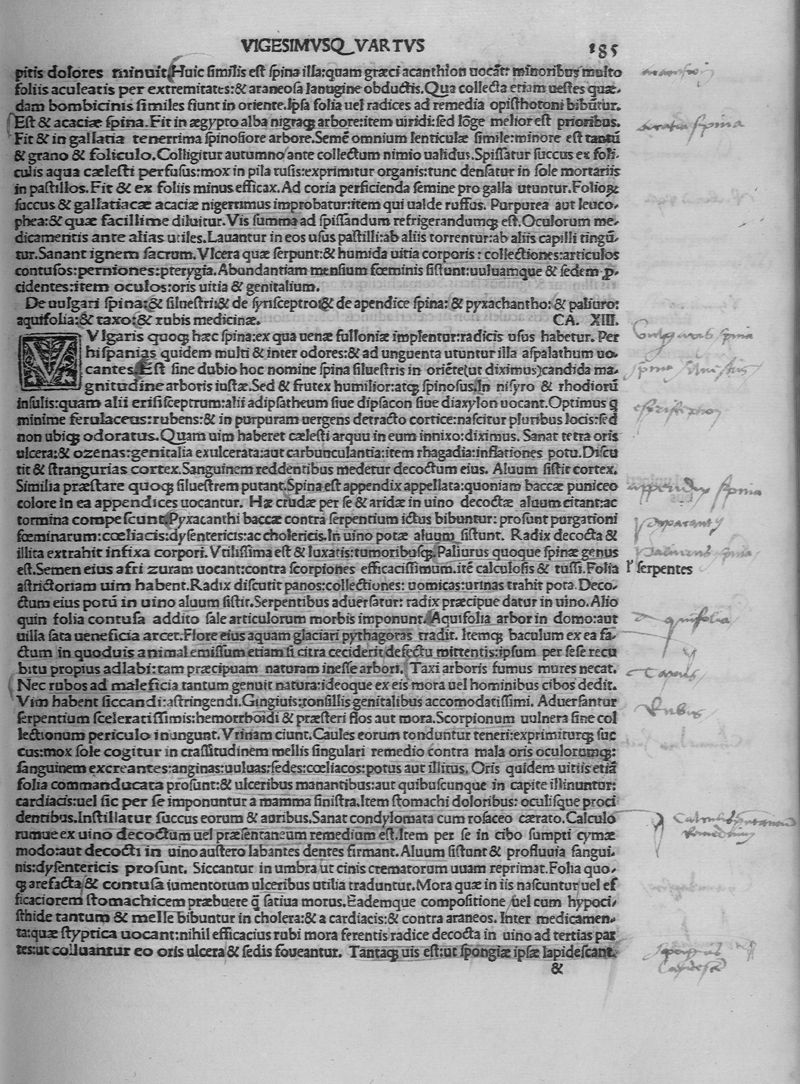 VIGESIMVSQVARTVS 185
pitis dolores minuit. Huic similis est spina illa: quam græci acanthion uocāt: minoribus multo
foliis aculeatis per extremitates: & araneosa lanugine obductis. Qua collecta etiam uestes quæ-
dam bombicinis similes fiunt in oriente. Ipsa folia uel radices ad remedia opisthotoni bibūtur.
Est & acaciæ spina. Fit in ægypto alba nigraq; arbore: item uiridi: sed lōge melior est prioribus.
Fit & in gallatia tenerrima spinosiore arbore. Semē omnium lenticulæ simile: minore est tantū
& grano & foliculo. Colligitur autumno ante collectum nimio ualidus. Spissatur succus ex foli-
culis aqua cælesti perfusus: mox in pila tusis: exprimitur organis: tunc densatur in sole mortariis
in pastillos. Fit & ex foliis minus efficax. Ad coria perficienda semine pro galla utuntur. Folioꝝ
succus & gallatiacæ acaciæ nigerrimus improbatur: item qui ualde ruffus. Purpurea aut leuco-
phea: & quæ facillime diluitur. Vis summa ad spissandum refrigerandumq; est. Oculorum me-
dicamentis ante alias utiles. Lauantur in eos usus pastilli: ab aliis torrentur: ab aliis capilli tingū-
tur. Sanant ignem sacrum. Vlcera quæ serpunt: & humida uitia corporis: collectiones: articulos
contusos: perniones: pterygia. Abundantiam mensium fœminis sistunt: uuluamque & sedem ꝓ-
cidentes: item oculos: oris uitia & genitalium.
De uulgari spina: & siluestri: & de sysisceptro: & de apendice spina: & pyxachantho: & paliuro:
aquifolia: & taxo: & rubis medicinæ. CA. XIII.
VVlgaris quoq; hæc spina: ex qua uenæ fulloniæ implentur: radicis usus habetur. Per
hispanias quidem multi & inter odores: & ad unguenta utuntur illa aspalathum uo-
cantes. Est sine dubio hoc nomine spina siluestris in oriēte (ut diximus) candida ma-
gnitudine arboris iustæ. Sed & frutex humilior: atq; spinosus. In nisyro & rhodiorū
insulis: quam alii erisisceptrum: alii adipsatheum siue dipsacon siue diaxylon uocant. Optimus q̄
minime ferulaceus: rubens: & in purpuram uergens detracto cortice: nascitur pluribus locis: sed
non ubiq; odoratus. Quam uim haberet cælesti arquu in eum innixo: diximus. Sanat tetra oris
ulcera: & ozenas: genitalia exulcerata: aut carbunculantia: item rhagadia: inflationes potu. Discu
tit & strangurias cortex. Sanguinem reddentibus medetur decoctum eius. Aluum sistit cortex.
Similia præstare quoq; siluestrem putant. Spina est appendix appellata: quoniam baccæ puniceo
colore in ea appendices uocantur. Hæ crudæ per se & aridæ in uino decoctæ aluum citant: ac
tormina compescunt. Pyxacanthi baccæ contra serpentium ictus bibuntur: prosunt purgationi
fœminarum: cœliacis: dysentericis: ac cholericis. In uino potæ aluum sistunt. Radix decocta &
illita extrahit infixa corpori. Vtilissima est & luxatis: tumoribusq;. Paliurus quoque spinæ genus
est. Semen eius afri zuram uocant: contra scorpiones efficacissimum. itē calculosis & tussi. Folia
serpentes
astrictoriam uim habent. Radix discutit panos: collectiones: uomicas: urinas trahit pota. Deco-
ctum eius potū in uino aluum sistit. Serpentibus aduersatur: radix præcipue datur in uino. Alio
quin folia contusa addito sale articulorum morbis imponunt. Aquifolia arbor in domo: aut
uilla sata ueneficia arcet. Flore eius aquam glaciari pythagoras tradit. Itemq; baculum ex ea fa-
ctum in quoduis animal emissum etiam si citra ceciderit defectu mittentis: ipsum per sese recu
bitu propius adlabi: tam præcipuam naturam inesse arbori. Taxi arboris fumus mures necat.
Nec rubos ad maleficia tantum genuit natura: ideoque ex eis mora uel hominibus cibos dedit.
Vim habent siccandi: astringendi. Gingiuis: tonsillis genitalibus accomodatissimi. Aduersantur
serpentium sceleratissimis: hemorrhoidi & præsteri flos aut mora. Scorpionum uulnera sine col
lectionum periculo inungunt. Vrinam ciunt. Caules eorum tonduntur teneri: exprimiturq; suc
cus: mox sole cogitur in crassitudinem mellis singulari remedio contra mala oris oculorumq;:
sanguinem excreantes: anginas: uuluas: sedes: cœliacos: potus aut illitus. Oris quidem uitiis etiā
folia commanducata prosunt: & ulceribus manantibus: aut quibuscunque in capite illinuntur:
cardiacis: uel sic per se imponuntur a mamma sinistra. Item stomachi doloribus: oculisque proci
dentibus. Instillatur succus eorum & auribus. Sanat condylomata cum rosaceo cærato. Calculo
rumue ex uino decoctum uel præsentaneum remedium est. Item per se in cibo sumpti cymæ
modo: aut decocti in uino austero labantes dentes firmant. Aluum sistunt & profluuia sangui-
nis: dysentericis prosunt. Siccantur in umbra ut cinis crematorum uuam reprimat. Folia quo-
q; arefacta & contusa iumentorum ulceribus utilia traduntur. Mora quæ in iis nascuntur uel ef
ficaciorem stomachicem præbuere q̄ satiua morus. Eademque compositione uel cum hypoci-
sthide tantum & melle bibuntur in cholera: & a cardiacis: & contra araneos. Inter medicamen-
ta: quæ styptica uocant: nihil efficacius rubi mora ferentis radice decocta in uino ad tertias par
tes: ut colluantur eo oris ulcera & sedis foueantur. Tantaq; uis est: ut spongiæ ipsæ lapidescant.
&